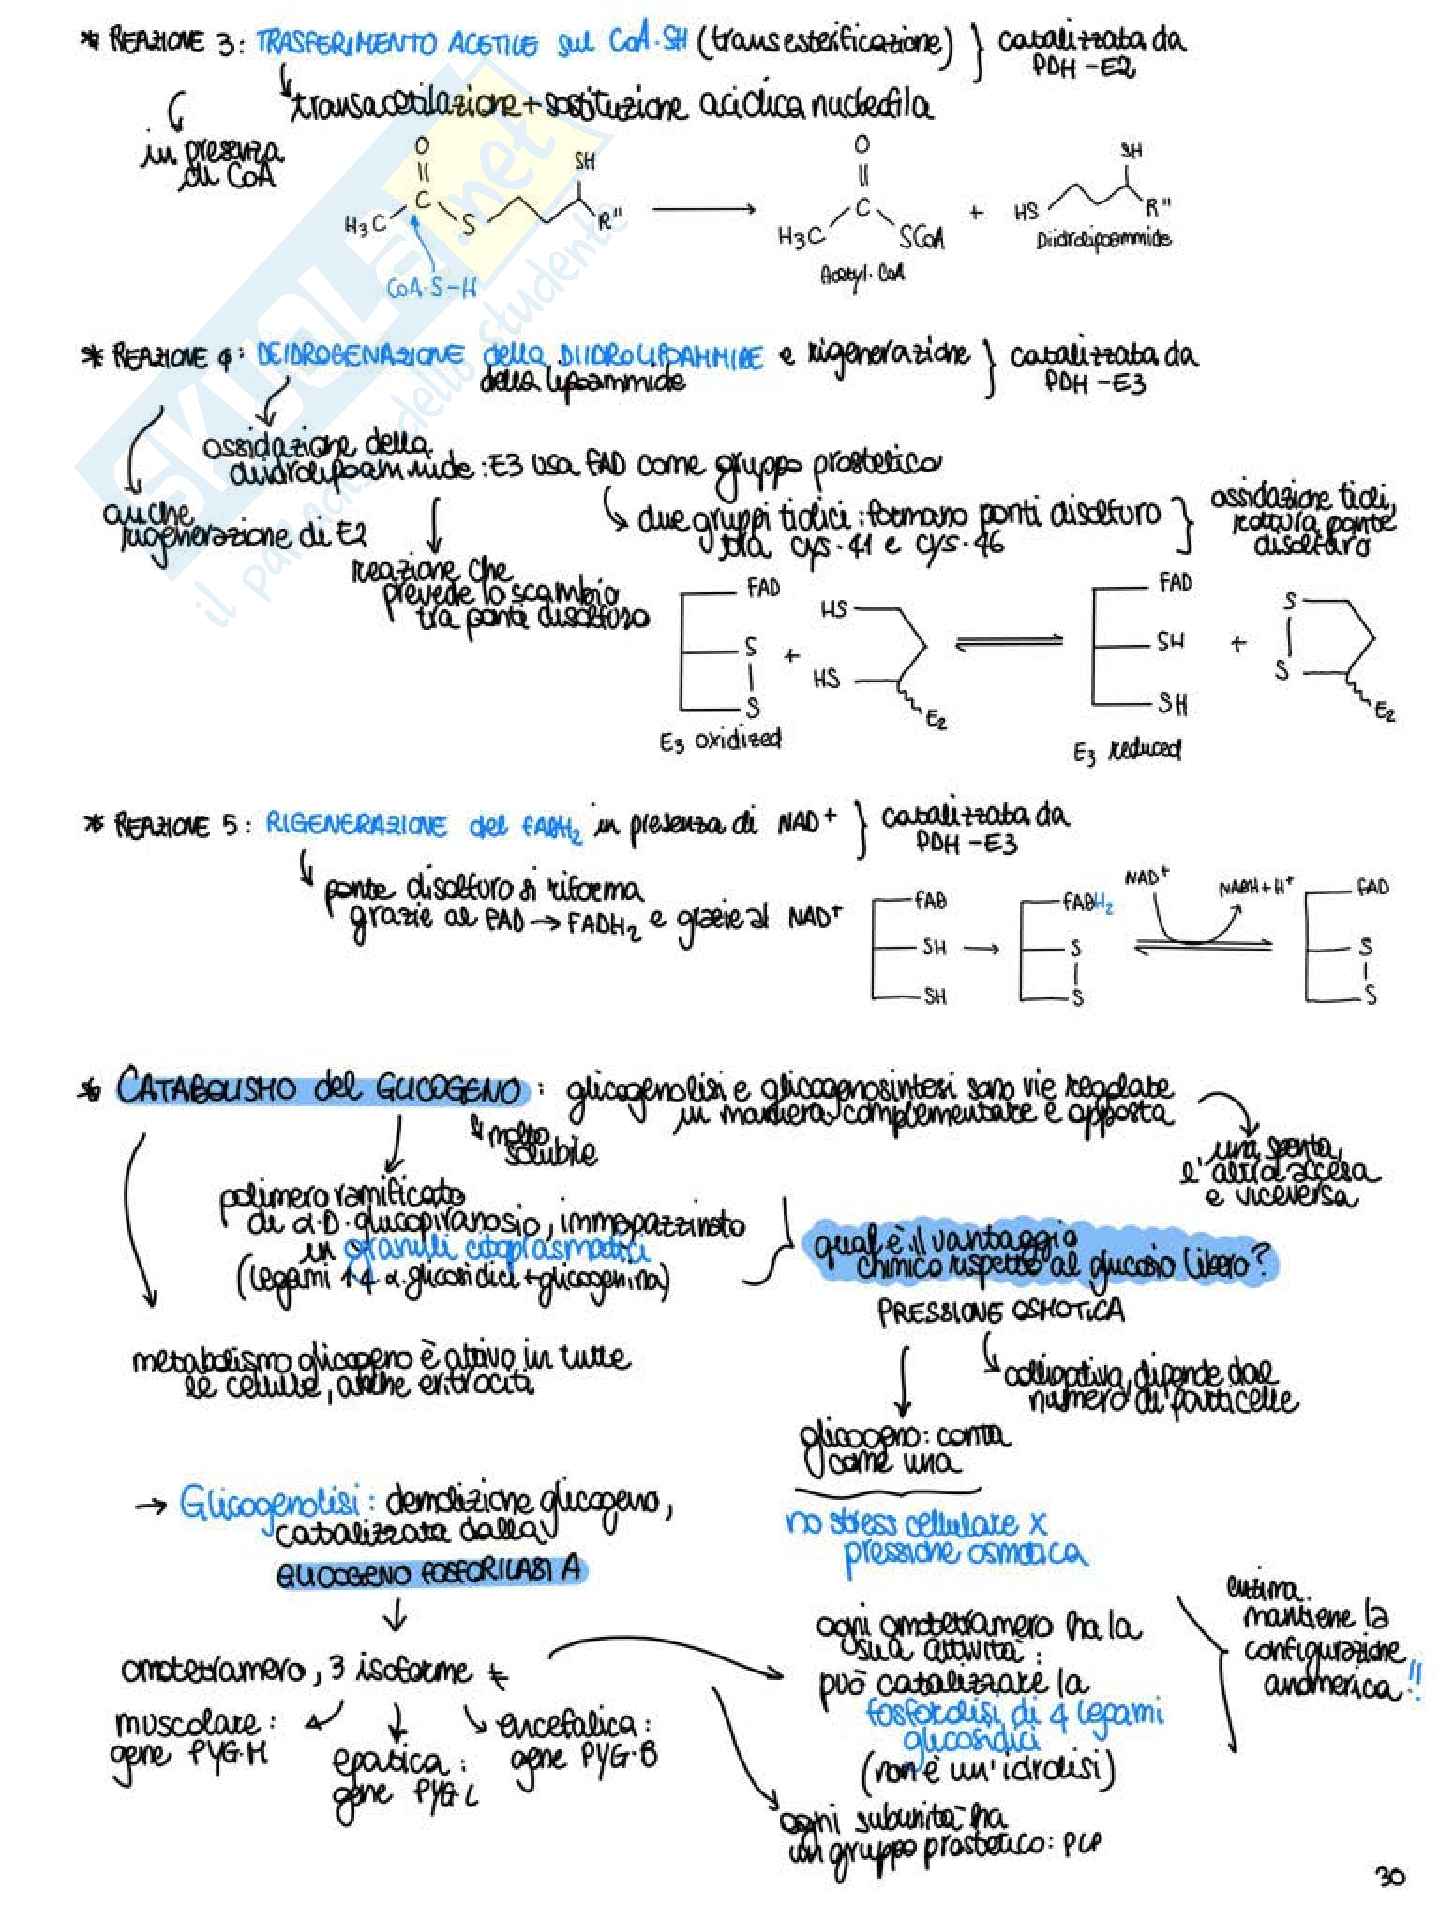 * REAZIONE 3: TRASFERIMENTO ACETILE sul CoA-SH (transesterificazione) } catalizzata da
PDH-E2
transacetilazione + sostituzione acidica nucleofila
in presenza
di CoA
O
C
H₃C
S
SH
R"
CoA-S-H
O
C
H₃C
SCoA
Acetyl-CoA
+
SH
HS
R"
Diidrolipoammide
* REAZIONE 4: DEIDROGENAZIONE della DIIDROLIPOAMMIDE e rigenerazione } catalizzata da
della lipoammide
PDH-E3
ossidazione della
diidrolipoammide: E3 usa FAD come gruppo prostetico
anche
rigenerazione di E2
due gruppi tiolici: formano ponti disolfuro }
tra cys-41 e cys-46
ossidazione tioli,
rottura ponte
disolfuro
reazione che
prevede lo scambio
tra ponti disolfuro
FAD
S
S
E₃ oxidized
+
HS
HS
E₂
FAD
SH
SH
E₃ reduced
+
S
S
E₂
* REAZIONE 5: RIGENERAZIONE del FADH₂ in presenza di NAD⁺ } catalizzata da
PDH-E3
ponte disolfuro si riforma
grazie al FAD → FADH₂ e grazie al NAD⁺
FAD
SH
SH
FADH₂
S
S
NAD⁺
NADH + H⁺
FAD
S
S
* CATABOLISMO del GLICOGENO: glicogenolisi e glicogenosintesi sono vie regolate
in maniera complementare e opposta
molto
solubile
una spenta,
l'altra accesa
e viceversa
polimero ramificato
di α-D-glucopiranosio, immagazzinato
in granuli citoplasmatici
(legami 1,4 α-glicosidici + glicogenina)
qual è il vantaggio
chimico rispetto al glucosio libero?
PRESSIONE OSMOTICA
metabolismo glicogeno è attivo in tutte
le cellule, anche eritrociti
colligativa, dipende dal
numero di particelle
glicogeno: conta
come una
no stress cellulare x
pressione osmotica
→ Glicogenolisi: demolizione glicogeno,
catalizzata dalla
GLICOGENO FOSFORILASI A
omotetramero, 3 isoforme ≠
muscolare:
gene PYG-M
epatica:
gene PYG-L
encefalica:
gene PYG-B
ogni omotetramero ha la
sua attività:
può catalizzare la
fosforolisi di 4 legami
glicosidici
(non è un'idrolisi)
enzima
mantiene la
configurazione
anomerica!!
ogni subunità ha
un gruppo prostetico: PLP
30
SKUOLA.net
il paradiso dello studente